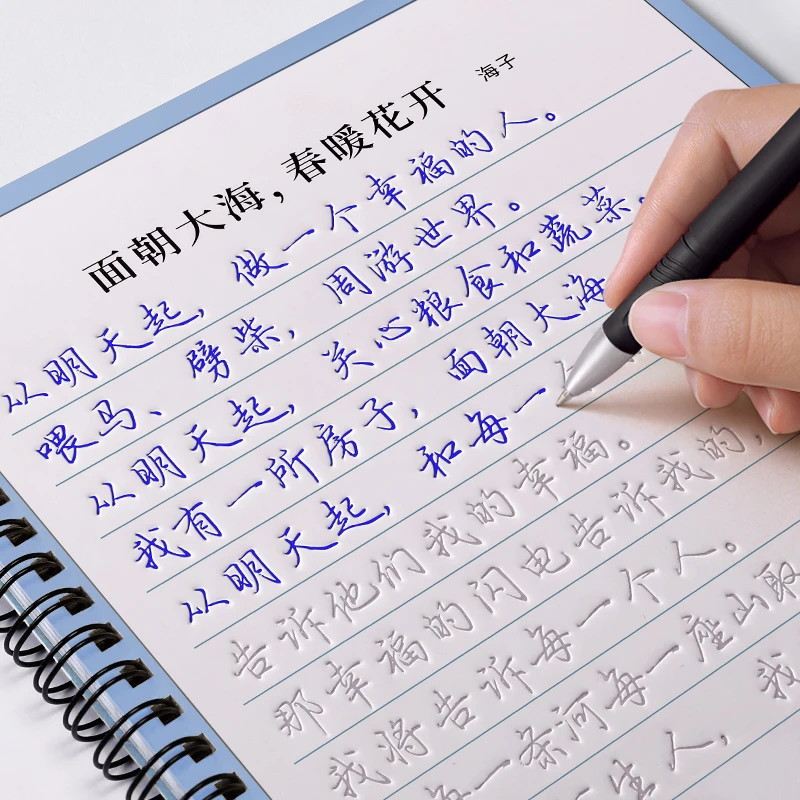 面朝大海，春暖花开
海子
从明天起，做一个幸福的人。
喂马、劈柴，周游世界。
从明天起，关心粮食和蔬菜。
我有一所房子，面朝大海
从明天起，和每一
告诉他们我的幸福。
那幸福的闪电告诉我的，
我将告诉每一个人。
每一条河每一座山取
一生人，我